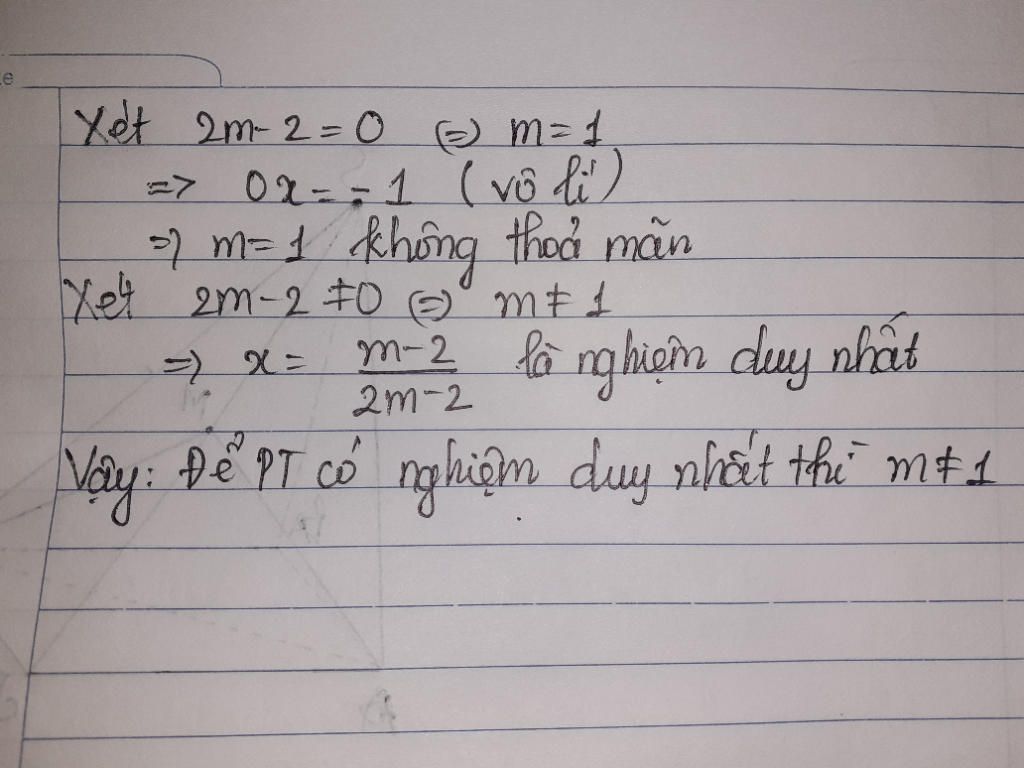 Xét 2m-2=0 (=) m=1
=> 0x=-1 (vô lí)
=) m=1 không thoả mãn
Xét 2m-2≠0 (=) m≠1
=) x= \frac{m-2}{2m-2} là nghiệm duy nhất
Vậy: Để PT có nghiệm duy nhất thì m≠1